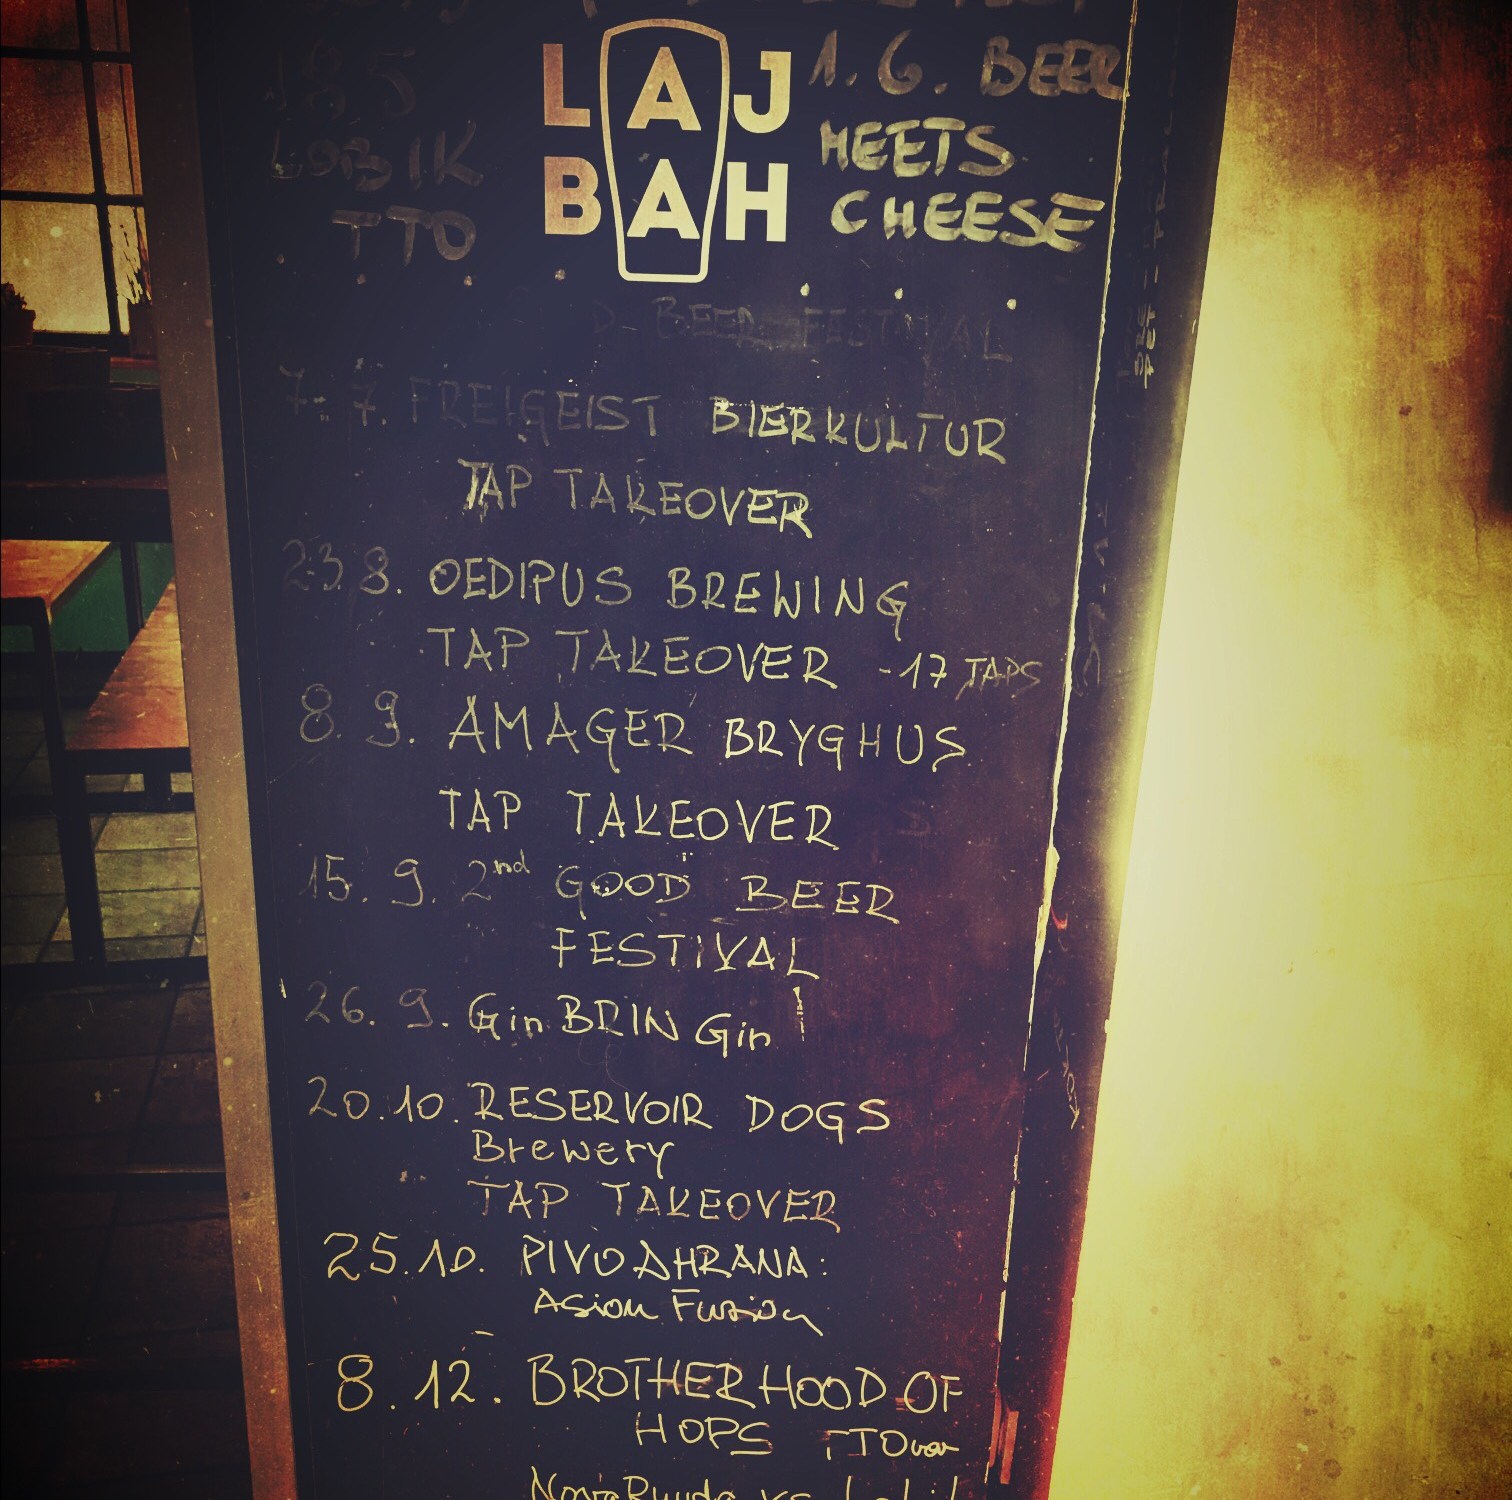 18.5
LOBIK
TTO
LAJ
BAH
1. 6. BEER
MEETS
CHEESE
BEER FESTIVAL
7. 7. FREIGEIST BIERKULTUR
TAP TAKEOVER
23.8. OEDIPUS BREWING
TAP TAKEOVER - 17 TAPS
8. 9. AMAGER BRYGHUS
TAP TAKEOVER
15. 9. 2nd GOOD BEER
FESTIVAL
26. 9. Gin BRIN Gin
20.10. RESERVOIR DOGS
Brewery
TAP TAKEOVER
25.10. PIVO & HRANA:
Asian Fusion
8. 12. BROTHERHOOD OF
HOPS TTO